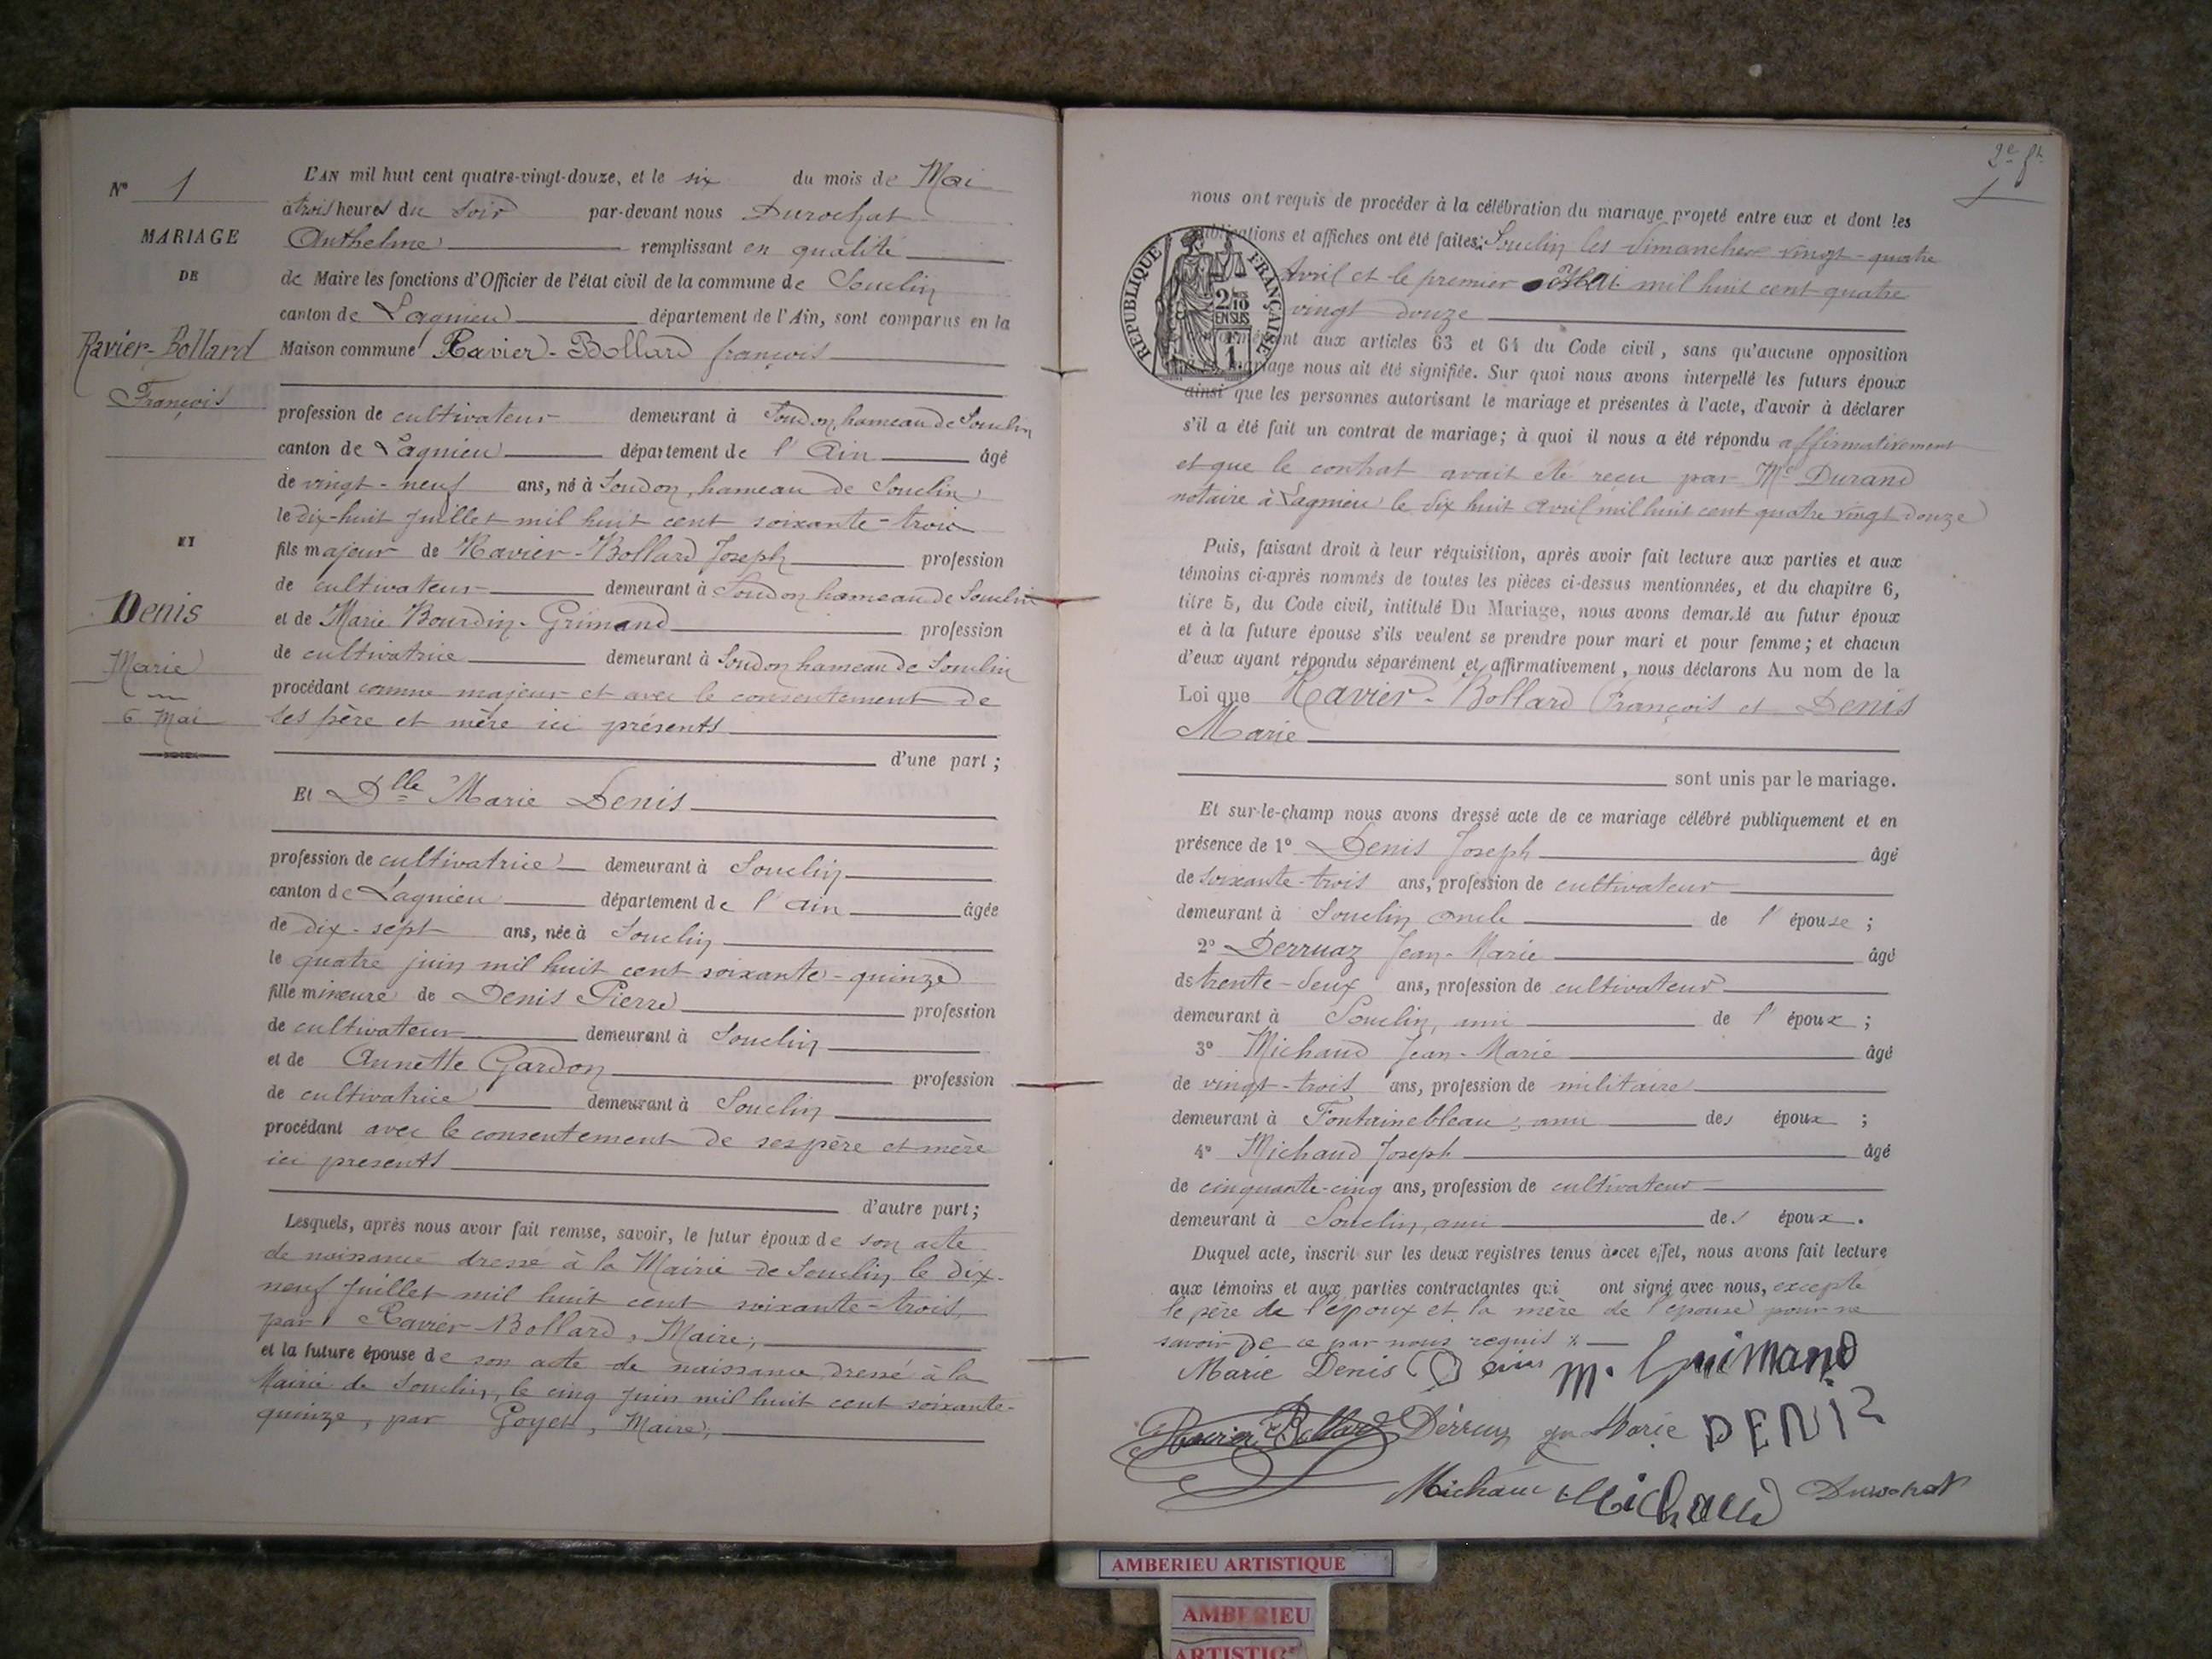 N° 1
MARIAGE
DE
Ravier-Bollard
François
ET
Denis
Marie
6 Mai
L'AN mil huit cent quatre-vingt-douze, et le six du mois de Mai
à trois heures du soir par-devant nous Durochat
Anthelme remplissant en qualité
de Maire les fonctions d'Officier de l'état civil de la commune de Souclin
canton de Lagnieu département de l'Ain, sont comparus en la
Maison commune Ravier-Bollard françois
profession de cultivateur demeurant à Soudon, hameau de Souclin
canton de Lagnieu département de l'Ain âgé
de vingt-neuf ans, né à Soudon, hameau de Souclin
le dix-huit Juillet mil huit cent soixante-trois
fils majeur de Ravier-Bollard Joseph profession
de cultivateur demeurant à Soudon hameau de Souclin
et de Marie Bourdin-Grimand profession
de cultivatrice demeurant à Soudon hameau de Souclin
procédant comme majeur et avec le consentement de
ses père et mère ici présents
d'une part ;
Et Dlle Marie Denis
profession de cultivatrice demeurant à Souclin
canton de Lagnieu département de l'Ain âgée
de dix-sept ans, née à Souclin
le quatre juin mil huit cent soixante-quinze
fille mineure de Denis Pierre profession
de cultivateur demeurant à Souclin
et de Annette Gardon profession
de cultivatrice demeurant à Souclin
procédant avec le consentement de ses père et mère
ici présents
d'autre part ;
Lesquels, après nous avoir fait remise, savoir, le futur époux de son acte
de naissance dressé à la Mairie de Souclin le dix-
neuf Juillet mil huit cent soixante-trois,
par Ravier-Bollard, Maire,
et la future épouse de son acte de naissance dressé à la
Mairie de Souclin, le cinq Juin mil huit cent soixante-
quinze, par Goyet, Maire,
2e ft
1
nous ont requis de procéder à la célébration du mariage projeté entre eux et dont les
publications et affiches ont été faites à Souclin les dimanches vingt-quatre
Avril et le premier Mai mil huit cent quatre
vingt douze
RÉPUBLIQUE FRANÇAISE
2/10
EN SUS
1
conformément aux articles 63 et 64 du Code civil, sans qu'aucune opposition
mariage nous ait été signifiée. Sur quoi nous avons interpellé les futurs époux
ainsi que les personnes autorisant le mariage et présentes à l'acte, d'avoir à déclarer
s'il a été fait un contrat de mariage ; à quoi il nous a été répondu affirmativement
et que le contrat avait été reçu par Me Durand
notaire à Lagnieu le dix huit avril mil huit cent quatre vingt douze
Puis, faisant droit à leur réquisition, après avoir fait lecture aux parties et aux
témoins ci-après nommés de toutes les pièces ci-dessus mentionnées, et du chapitre 6,
titre 5, du Code civil, intitulé Du Mariage, nous avons demandé au futur époux
et à la future épouse s'ils veulent se prendre pour mari et pour femme ; et chacun
d'eux ayant répondu séparément et affirmativement, nous déclarons Au nom de la
Loi que Ravier-Bollard François et Denis
Marie
sont unis par le mariage.
Et sur-le-champ nous avons dressé acte de ce mariage célébré publiquement et en
présence de 1° Denis Joseph âgé
de soixante-trois ans, profession de cultivateur
demeurant à Souclin oncle de l'épouse ;
2° Derruaz Jean-Marie âgé
de trente-deux ans, profession de cultivateur
demeurant à Souclin, ami de l'époux ;
3° Michaud Jean-Marie âgé
de vingt-trois ans, profession de militaire
demeurant à Fontainebleau, ami des époux ;
4° Michaud Joseph âgé
de cinquante-cinq ans, profession de cultivateur
demeurant à Souclin, ami des époux.
Duquel acte, inscrit sur les deux registres tenus à cet effet, nous avons fait lecture
aux témoins et aux parties contractantes qui ont signé avec nous, excepté
le père de l'époux et la mère de l'épouse pour ne
savoir de ce par nous requis
Marie Denis M. Guimand
Ravier Bollard Derruaz jn Marie DENIS
Michaud Michaud Durochat
AMBERIEU ARTISTIQUE
AMBERIEU
ARTISTIQ